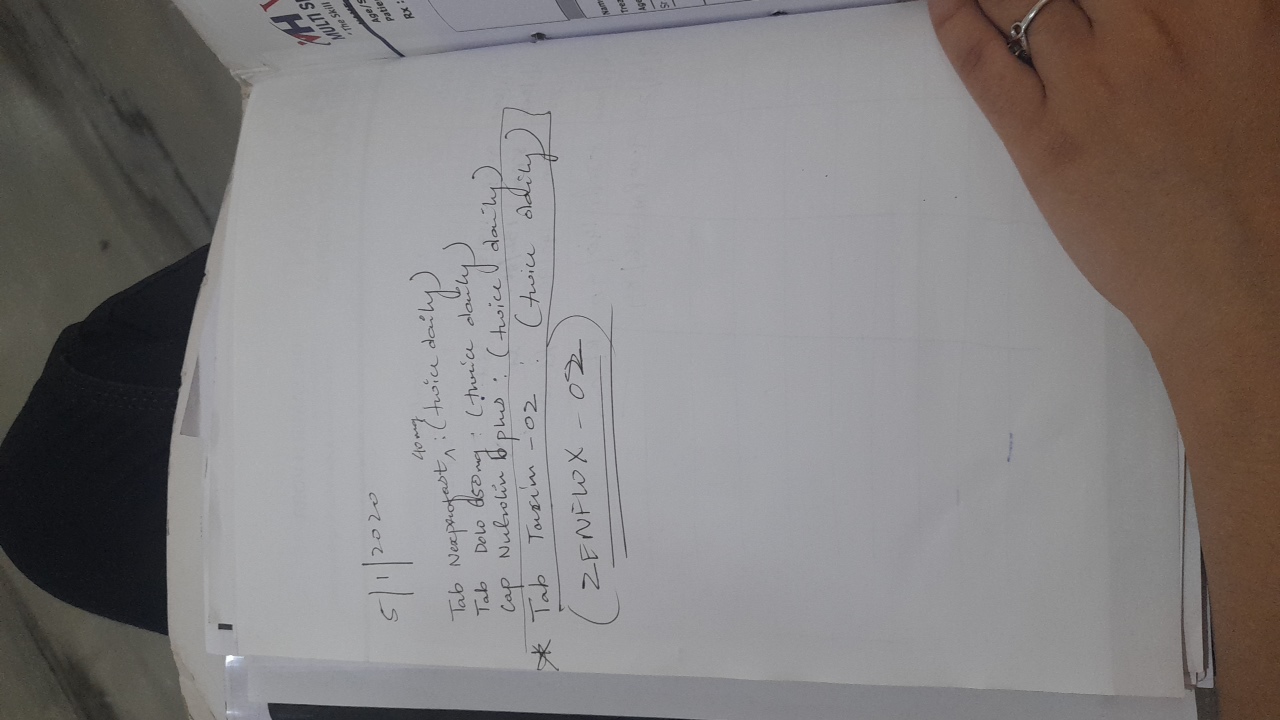 5/1/2020
Tab Nexprofast 40mg : (twice daily)
Tab Dolo 650mg : (twice daily)
Cap Nutrolin B plus : (twice daily)
* Tab Taxim - 02 : (twice daily)
(ZENFLOX - 02)
MULTI S
"The Skill
Age/S
Patie
Rx :
Nam
Trea
Age